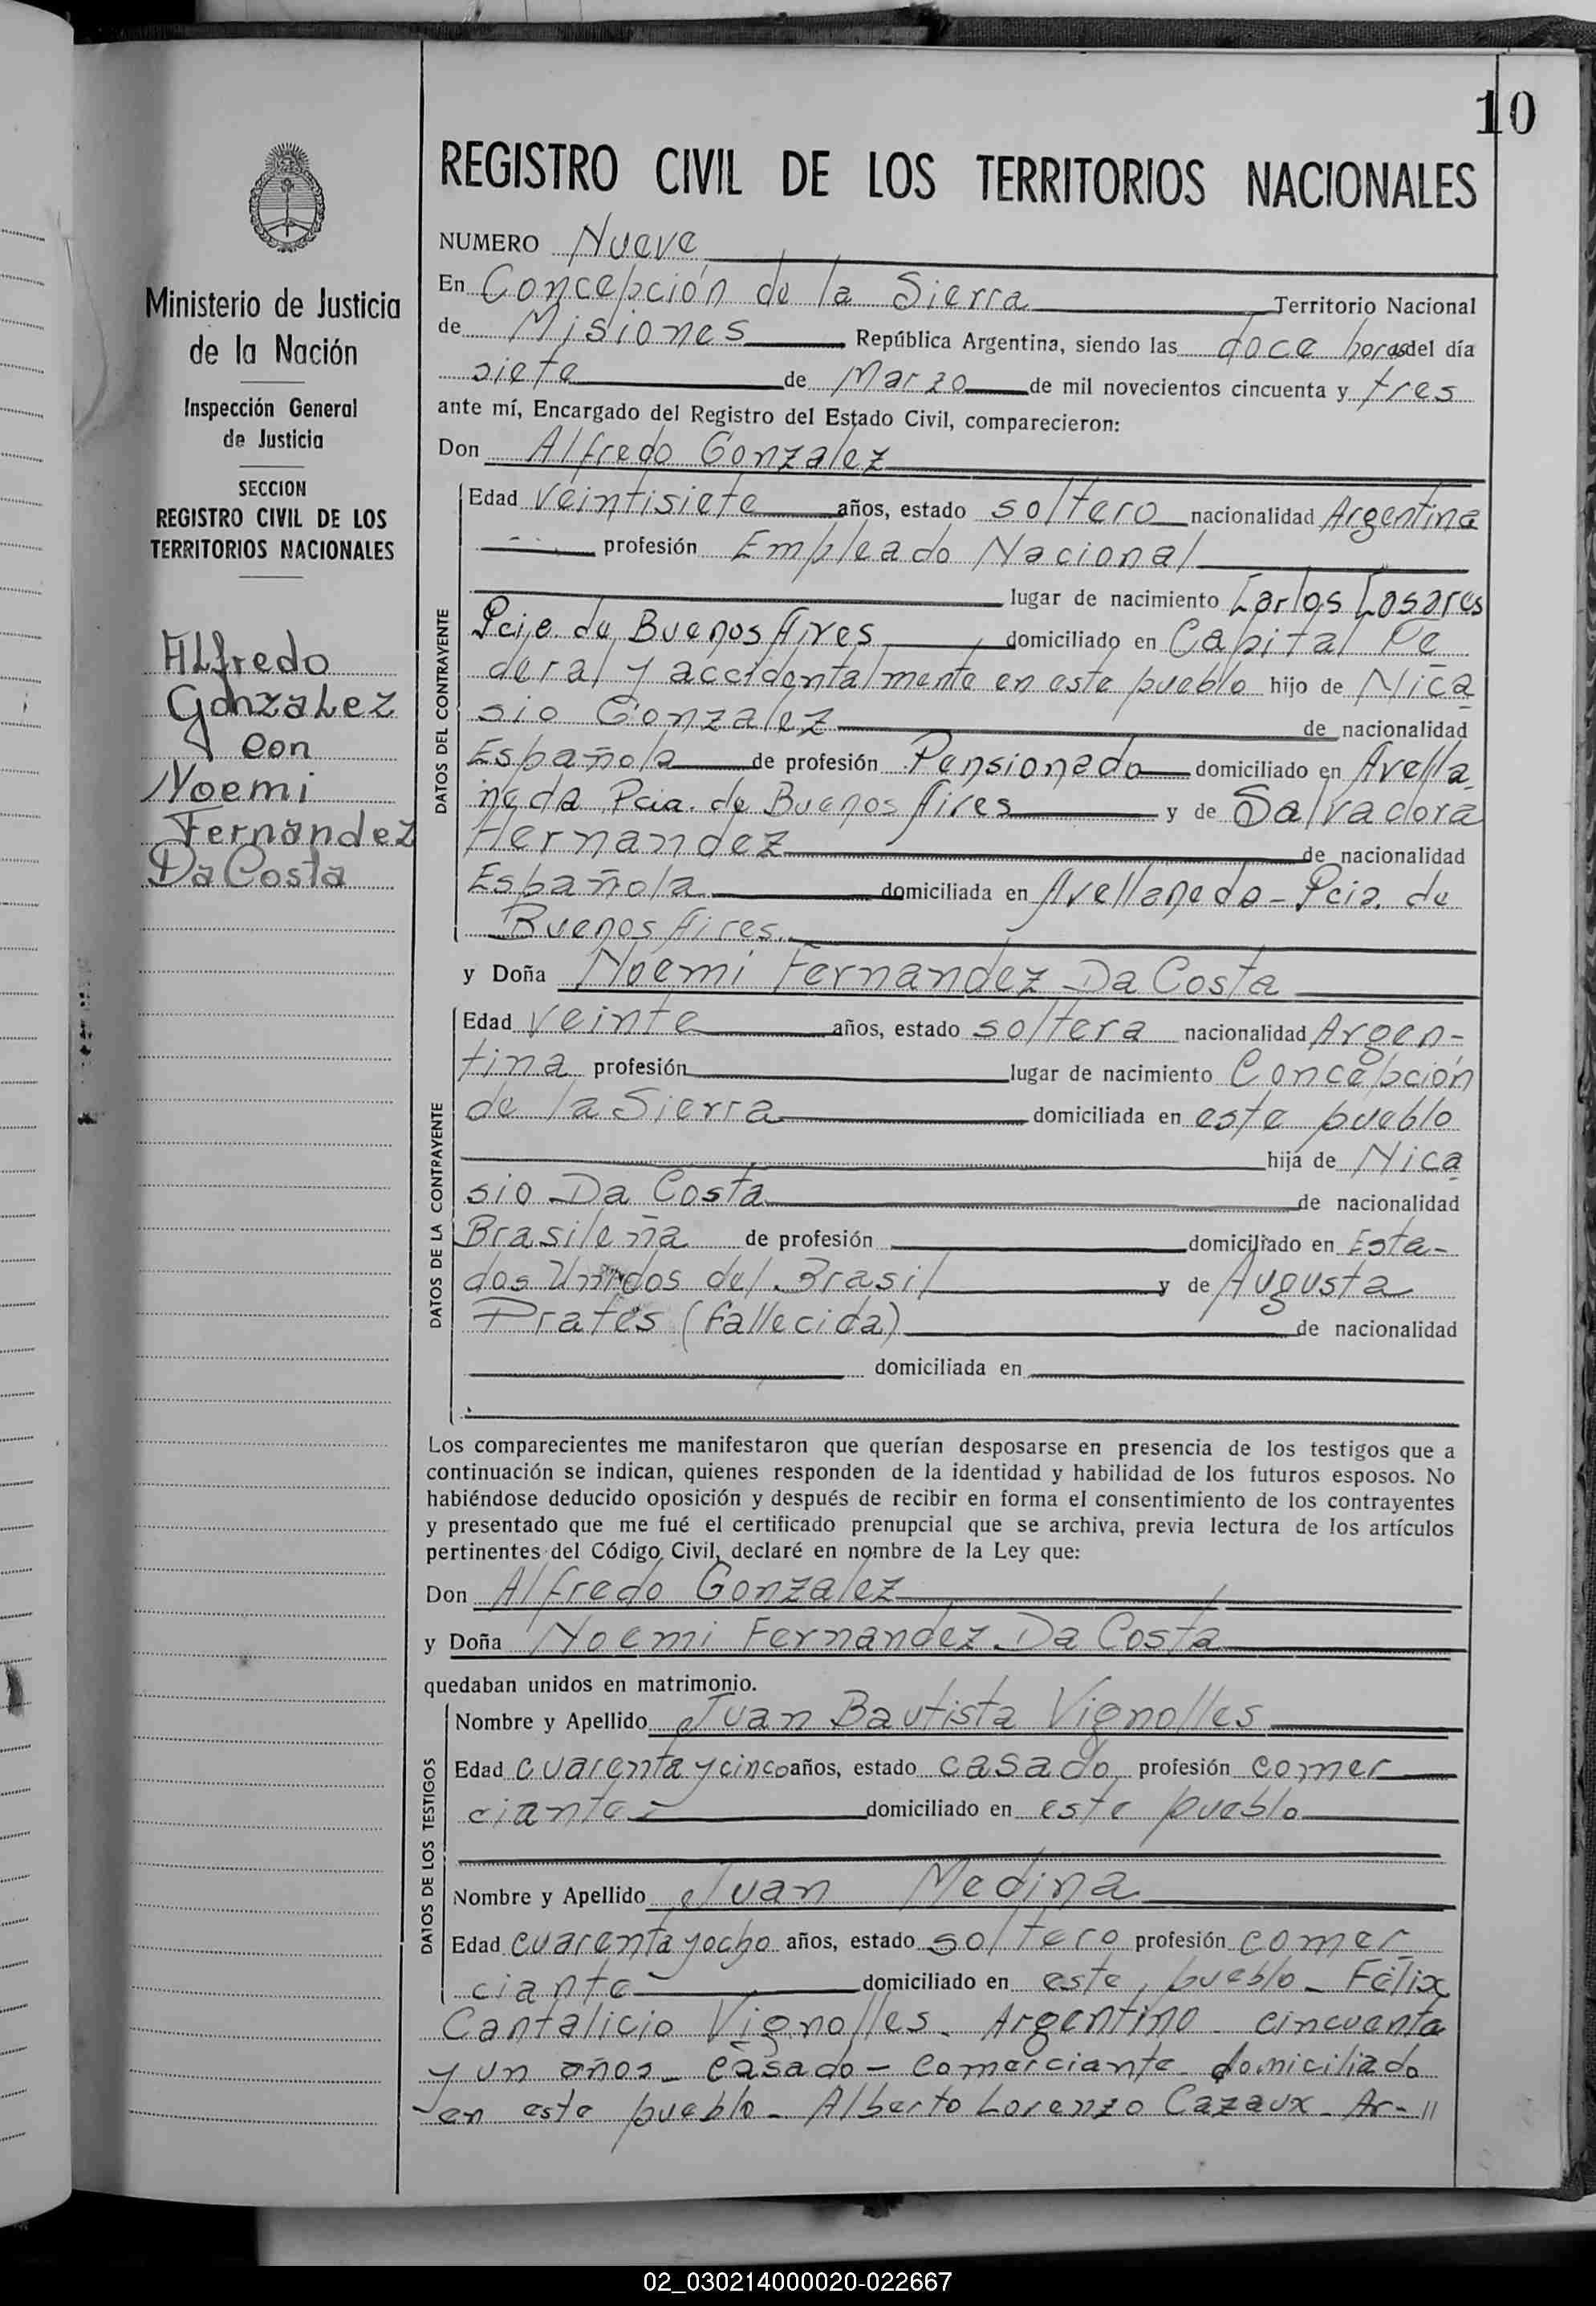 10
REGISTRO CIVIL DE LOS TERRITORIOS NACIONALES
Ministerio de Justicia
de la Nación
Inspección General
de Justicia
SECCION
REGISTRO CIVIL DE LOS
TERRITORIOS NACIONALES
Alfredo
Gonzalez
con
Noemi
Fernandez
Da Costa
NUMERO Nueve
En Concepción de la Sierra Territorio Nacional
de Misiones República Argentina, siendo las doce horas del día
siete de Marzo de mil novecientos cincuenta y tres
ante mí, Encargado del Registro del Estado Civil, comparecieron:
Don Alfredo Gonzalez
DATOS DEL CONTRAYENTE
Edad veintisiete años, estado soltero nacionalidad Argentina
profesión Empleado Nacional
lugar de nacimiento Carlos Casares
Pcia. de Buenos Aires domiciliado en Capital Fe
deral y accidentalmente en este pueblo hijo de Nica
sio Gonzalez de nacionalidad
Española de profesión Pensionado domiciliado en Avella
neda Pcia. de Buenos Aires y de Salvadora
Hernandez de nacionalidad
Española domiciliada en Avellaneda - Pcia. de
Buenos Aires.
y Doña Noemi Fernandez Da Costa
DATOS DE LA CONTRAYENTE
Edad veinte años, estado soltera nacionalidad Argen-
tina profesión lugar de nacimiento Concepción
de la Sierra domiciliada en este pueblo
hija de Nica
sio Da Costa de nacionalidad
Brasileña de profesión domiciliado en Esta-
dos Unidos del Brasil y de Augusta
Prates (fallecida) de nacionalidad
domiciliada en
Los comparecientes me manifestaron que querían desposarse en presencia de los testigos que a
continuación se indican, quienes responden de la identidad y habilidad de los futuros esposos. No
habiéndose deducido oposición y después de recibir en forma el consentimiento de los contrayentes
y presentado que me fué el certificado prenupcial que se archiva, previa lectura de los artículos
pertinentes del Código Civil, declaré en nombre de la Ley que:
Don Alfredo Gonzalez
y Doña Noemi Fernandez Da Costa
quedaban unidos en matrimonio.
DATOS DE LOS TESTIGOS
Nombre y Apellido Juan Bautista Vignolles
Edad cuarenta y cinco años, estado casado profesión comer
ciante - domiciliado en este pueblo
Nombre y Apellido Juan Medina
Edad cuarenta y ocho años, estado soltero profesión comer
ciante domiciliado en este pueblo - Félix
Cantalicio Vignolles - Argentino - cincuenta
y un años - casado - comerciante - domiciliado
en este pueblo - Alberto Lorenzo Cazaux - Ar- //
02_030214000020-022667